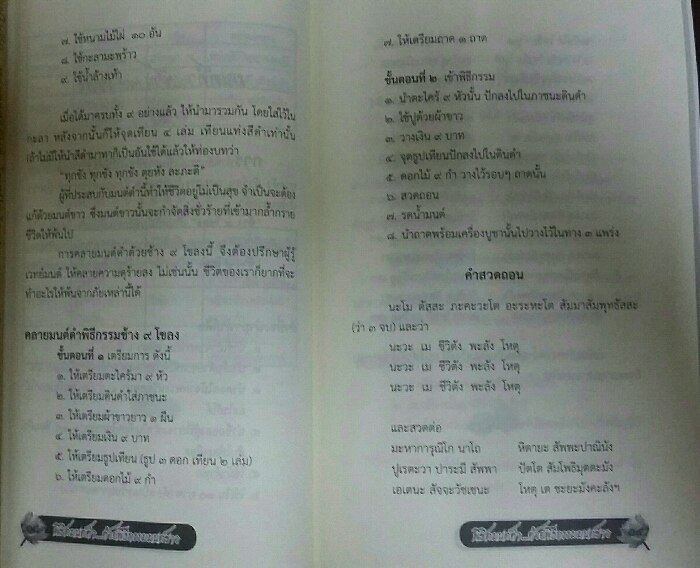 ๗. ใช้หนามไม้ไผ่ ๑๐ อัน
๘. ใช้กะลามะพร้าว
๙. ใช้น้ำล้างเท้า
เมื่อได้มาครบทั้ง ๙ อย่างแล้ว ให้นำมารวมกัน โดยใส่ไว้ใน
กะลา หลังจากนั้นก็ให้จุดเทียน ๔ เล่ม เทียนแท่งสีดำเท่านั้น
เล้าไม่มีให้นำสีดำมาทาก็เป็นอันใช้ได้แล้วให้ท่องบทว่า
"ทุกขัง ทุกขัง ทุกขัง ตุยหัง ละภะติ"
ผู้ที่ประสบกับมนต์ดำนี้ทำให้ชีวิตอยู่ไม่เป็นสุข จำเป็นจะต้อง
แก้ด้วยมนต์ขาว ซึ่งมนต์ขาวนั้นจะกำจัดสิ่งชั่วร้ายที่เข้ามากล้ำกราย
ชีวิตให้พ้นไป
การคลายมนต์ดำด้วยช้าง ๙ โขลงนี้ จึงต้องปรึกษาผู้รู้
เวทย์มนต์ ให้คลายความดุร้ายลง ไม่เช่นนั้น ชีวิตของเราก็ยากที่จะ
ทำอะไรให้พ้นจากภัยเหล่านี้ได้
คลายมนต์ดำพิธีกรรมช้าง ๙ โขลง
ขั้นตอนที่ ๑ เตรียมการ ดังนี้
๑. ให้เตรียมตะไคร้มา ๙ หัว
๒. ให้เตรียมดินดำใส่ภาชนะ
๓. ให้เตรียมผ้าขาวยาว ๑ ผืน
๔. ให้เตรียมเงิน ๙ บาท
๕. ให้เตรียมธูปเทียน (ธูป ๓ ดอก เทียน ๒ เล่ม)
๖. ให้เตรียมดอกไม้ ๙ กำ
๗. ให้เตรียมถาด ๑ ถาด
ขั้นตอนที่ ๒ เข้าพิธีกรรม
๑. นำตะไคร้ ๙ หัวนั้น ปักลงไปในภาชนะดินดำ
๒. ใช้ปูด้วยผ้าขาว
๓. วางเงิน ๙ บาท
๔. จุดธูปเทียนปักลงไปในดินดำ
๕. ดอกไม้ ๙ กำ วางไว้รอบๆ ถาดนั้น
๖. สวดถอน
๗. รดน้ำมนต์
๘. นำถาดพร้อมเครื่องบูชานั้นไปวางไว้ในทาง ๓ แพร่ง
คำสวดถอน
นะโม ตัสสะ ภะคะวะโต อะระหะโต สัมมาสัมพุทธัสสะ
(ว่า ๓ จบ) และว่า
นะวะ เม ชีวิตัง พะลัง โหตุ
นะวะ เม ชีวิตัง พะลัง โหตุ
นะวะ เม ชีวิตัง พะลัง โหตุ
และสวดต่อ
มะหาการุณิโก นาโถ หิตายะ สัพพะปาณินัง
ปูเรตะวา ปาระมี สัพพา ปัตโต สัมโพธิมุตตะมัง
เอเตนะ สัจจะวัชเชนะ โหตุ เต ชะยะมังคะลังฯ